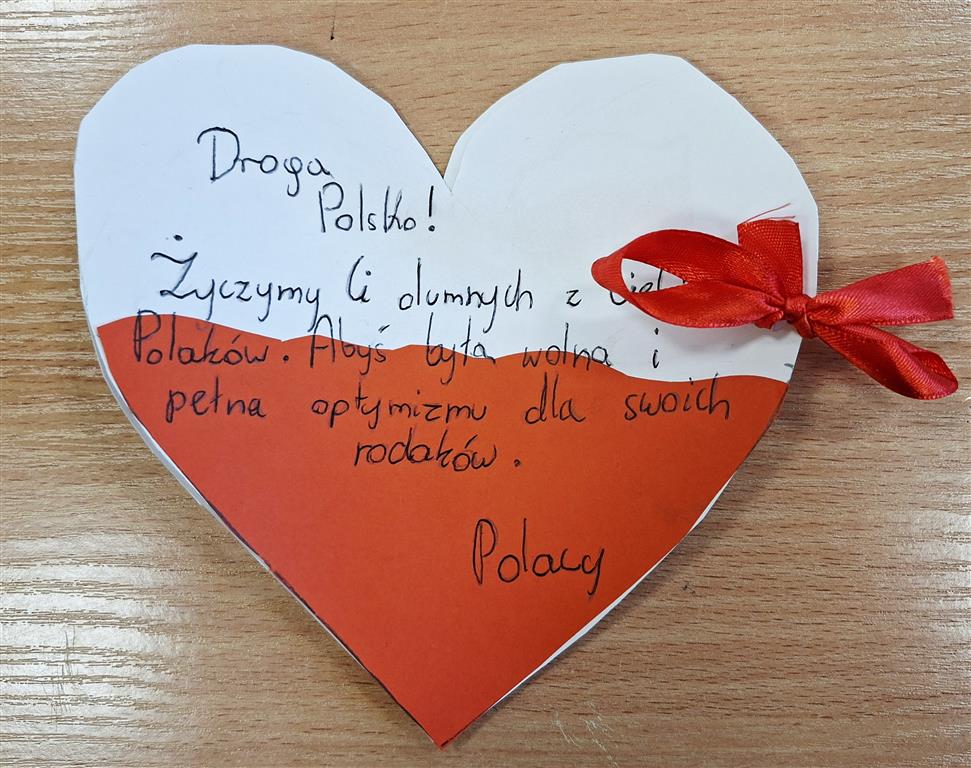 Droga
Polsko!
Życzymy Ci dumnych z
Polaków. Abyś była wolna i
pełna optymizmu dla swoich
rodaków.
Polacy